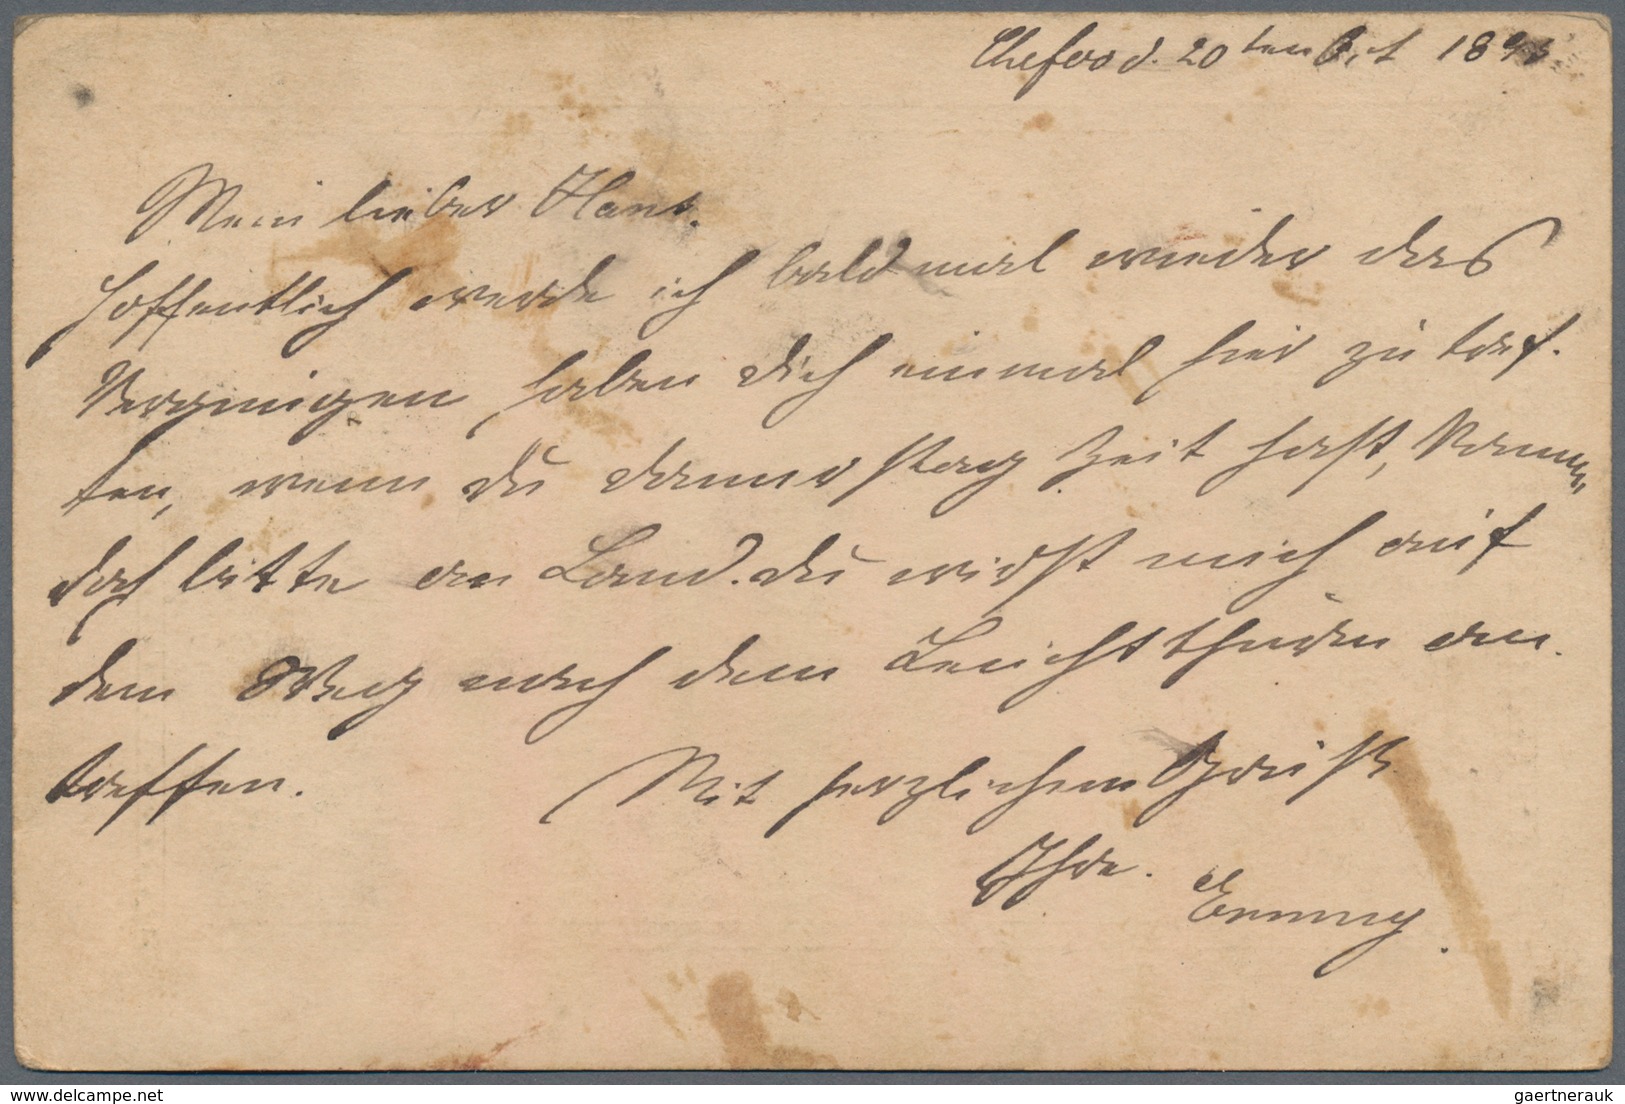 Chefoo d. 20 ten Oct 189
Mein lieber Hans.
Hoffentlich werde ich bald mal wieder das
Vergnügen haben Dich einmal hier zu tref-
fen, wenn Du Donnerstag Zeit hast, komme
doch bitte an Land. Du wirst mich auf
dem Weg nach dem Leuchtthurm an
treffen. Mit herzlichem Gruß
Ihre. Emmy.
gaertnerauk